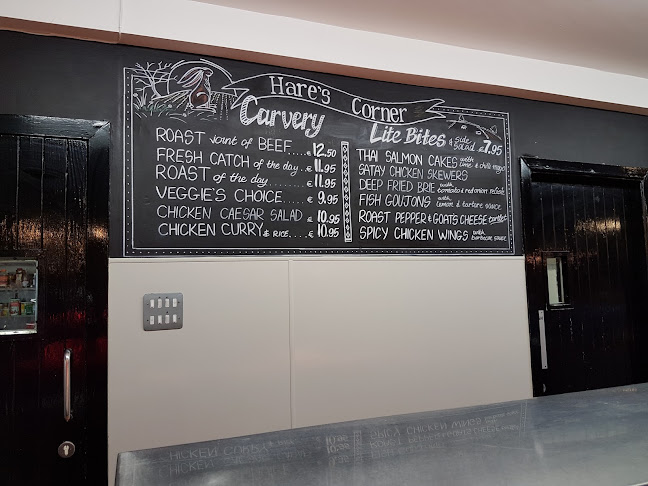 Hare's Corner
Carvery
ROAST Joint of BEEF.... €12.50
FRESH CATCH of the day... €11.95
ROAST of the day........ €11.95
VEGGIE'S CHOICE..... €9.95
CHICKEN CAESAR SALAD . €10.95
CHICKEN CURRY & RICE.... €10.95
Lite Bites & Side Salad €7.95
THAI SALMON CAKES with lime & chilli mayo
SATAY CHICKEN SKEWERS
DEEP FRIED BRIE with tomato & red onion relish
FISH GOUJONS with lemon & tartare sauce
ROAST PEPPER & GOATS CHEESE
SPICY CHICKEN WINGS with barbecue sauce